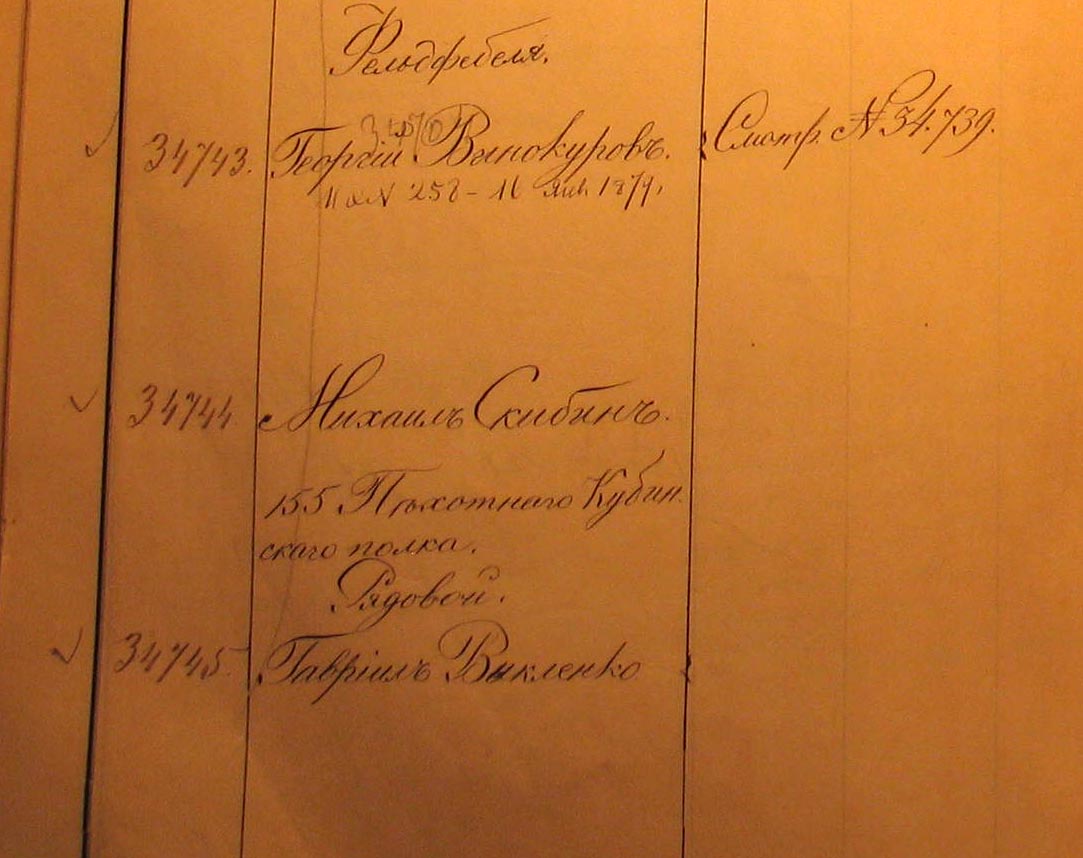 Фельдфебеля.
34743. Георгій Винокуровъ. Смотр. № 34.739.
№ 258 – 16 Янв 1879.
34744 Михаилъ Скибинъ.
155 Пѣхотнаго Кубин
скаго полка.
Рядовой.
34745. Гавріилъ Выкленко